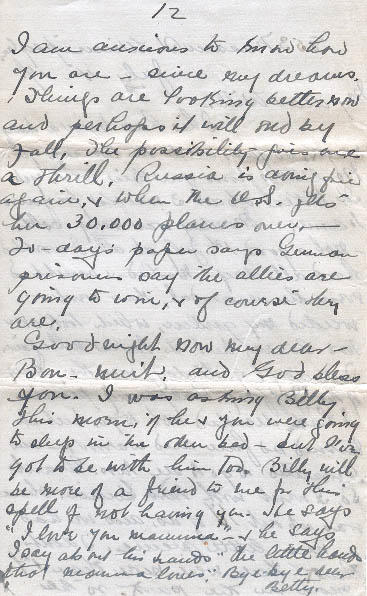 12
I am anxious to know how
you are - since my dreams.
Things are looking better now
and perhaps it will end by
Fall, The possibility gives me
a thrill, Russia is doing fine
again, & when the U.S. gets
her 30.000 planes over, -
To-day's paper says German
prisoners say the allies are
going to win, & of course they
are.
Good night now my dear -
Bon - nuit, and God bless
you. I was asking Billy
this morn, if he & you were going
to sleep in the other bed - but I've
got to be with him too. Billy will
be more of a friend to me for this
spell of not having you. He says
"I love you mamma" - & he says,
I say about his hands "the little hands
that mamma loves" Bye bye dear
Betty.